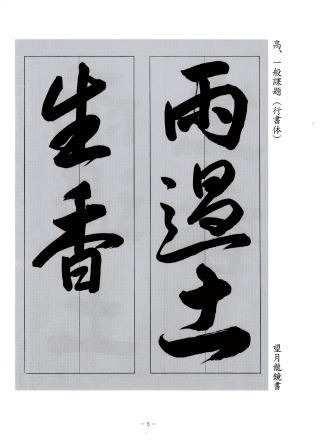 高、一般課題（行書体）
雨過土
生香
望月龍鏡書
－5－